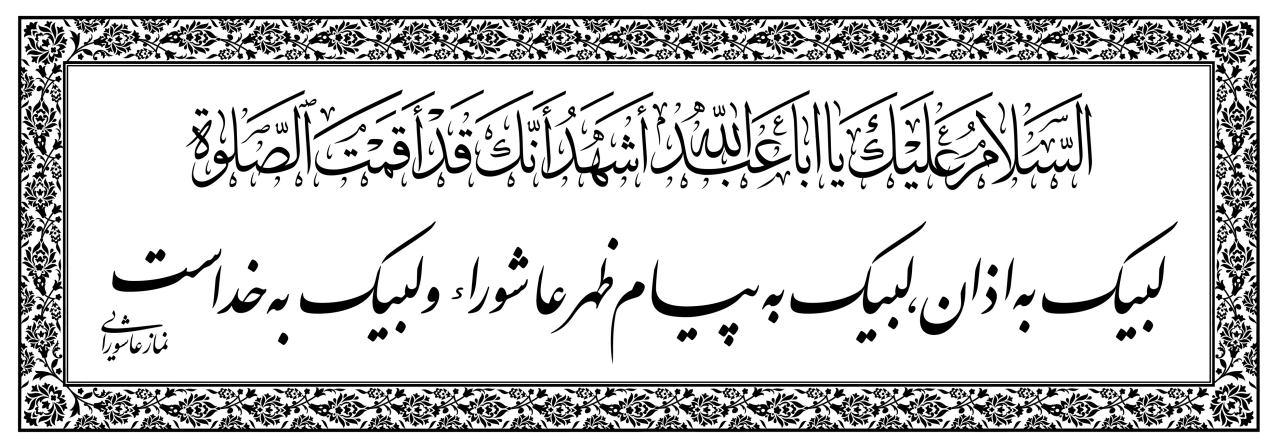 السَّلامُ عَلَيْكَ يا اباعَبْدِاللهِ أَشْهَدُ أَنَّكَ قَدْ أَقَمْتَ الصَّلوةَ
لبیک به اذان، لبیک به پیام ظهر عاشوراء و لبیک به خداست
نماز عاشورایی